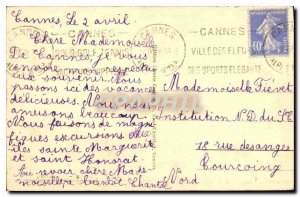 Cannes Le 2 avril.
Chère Mademoiselle
De Cannes, je vous
envoie mon respectueux
aux souvenir. Nous
passons ici des vacances
délicieuses. Nous nous
amusons beaucoup.
Nous faisons de magni-
fiques excursions aux
iles sainte Marguerite
et saint Honorat
Au revoir chère Made-
moiselle, a bientôt. Chantal
CANNES
CANNES
VILLE DES FLEURS
DES SPORTS ELEGANTS
40
Mademoiselle Fiévet
Institution N.D. du
18 rue des anges
Tourcoing
Nord